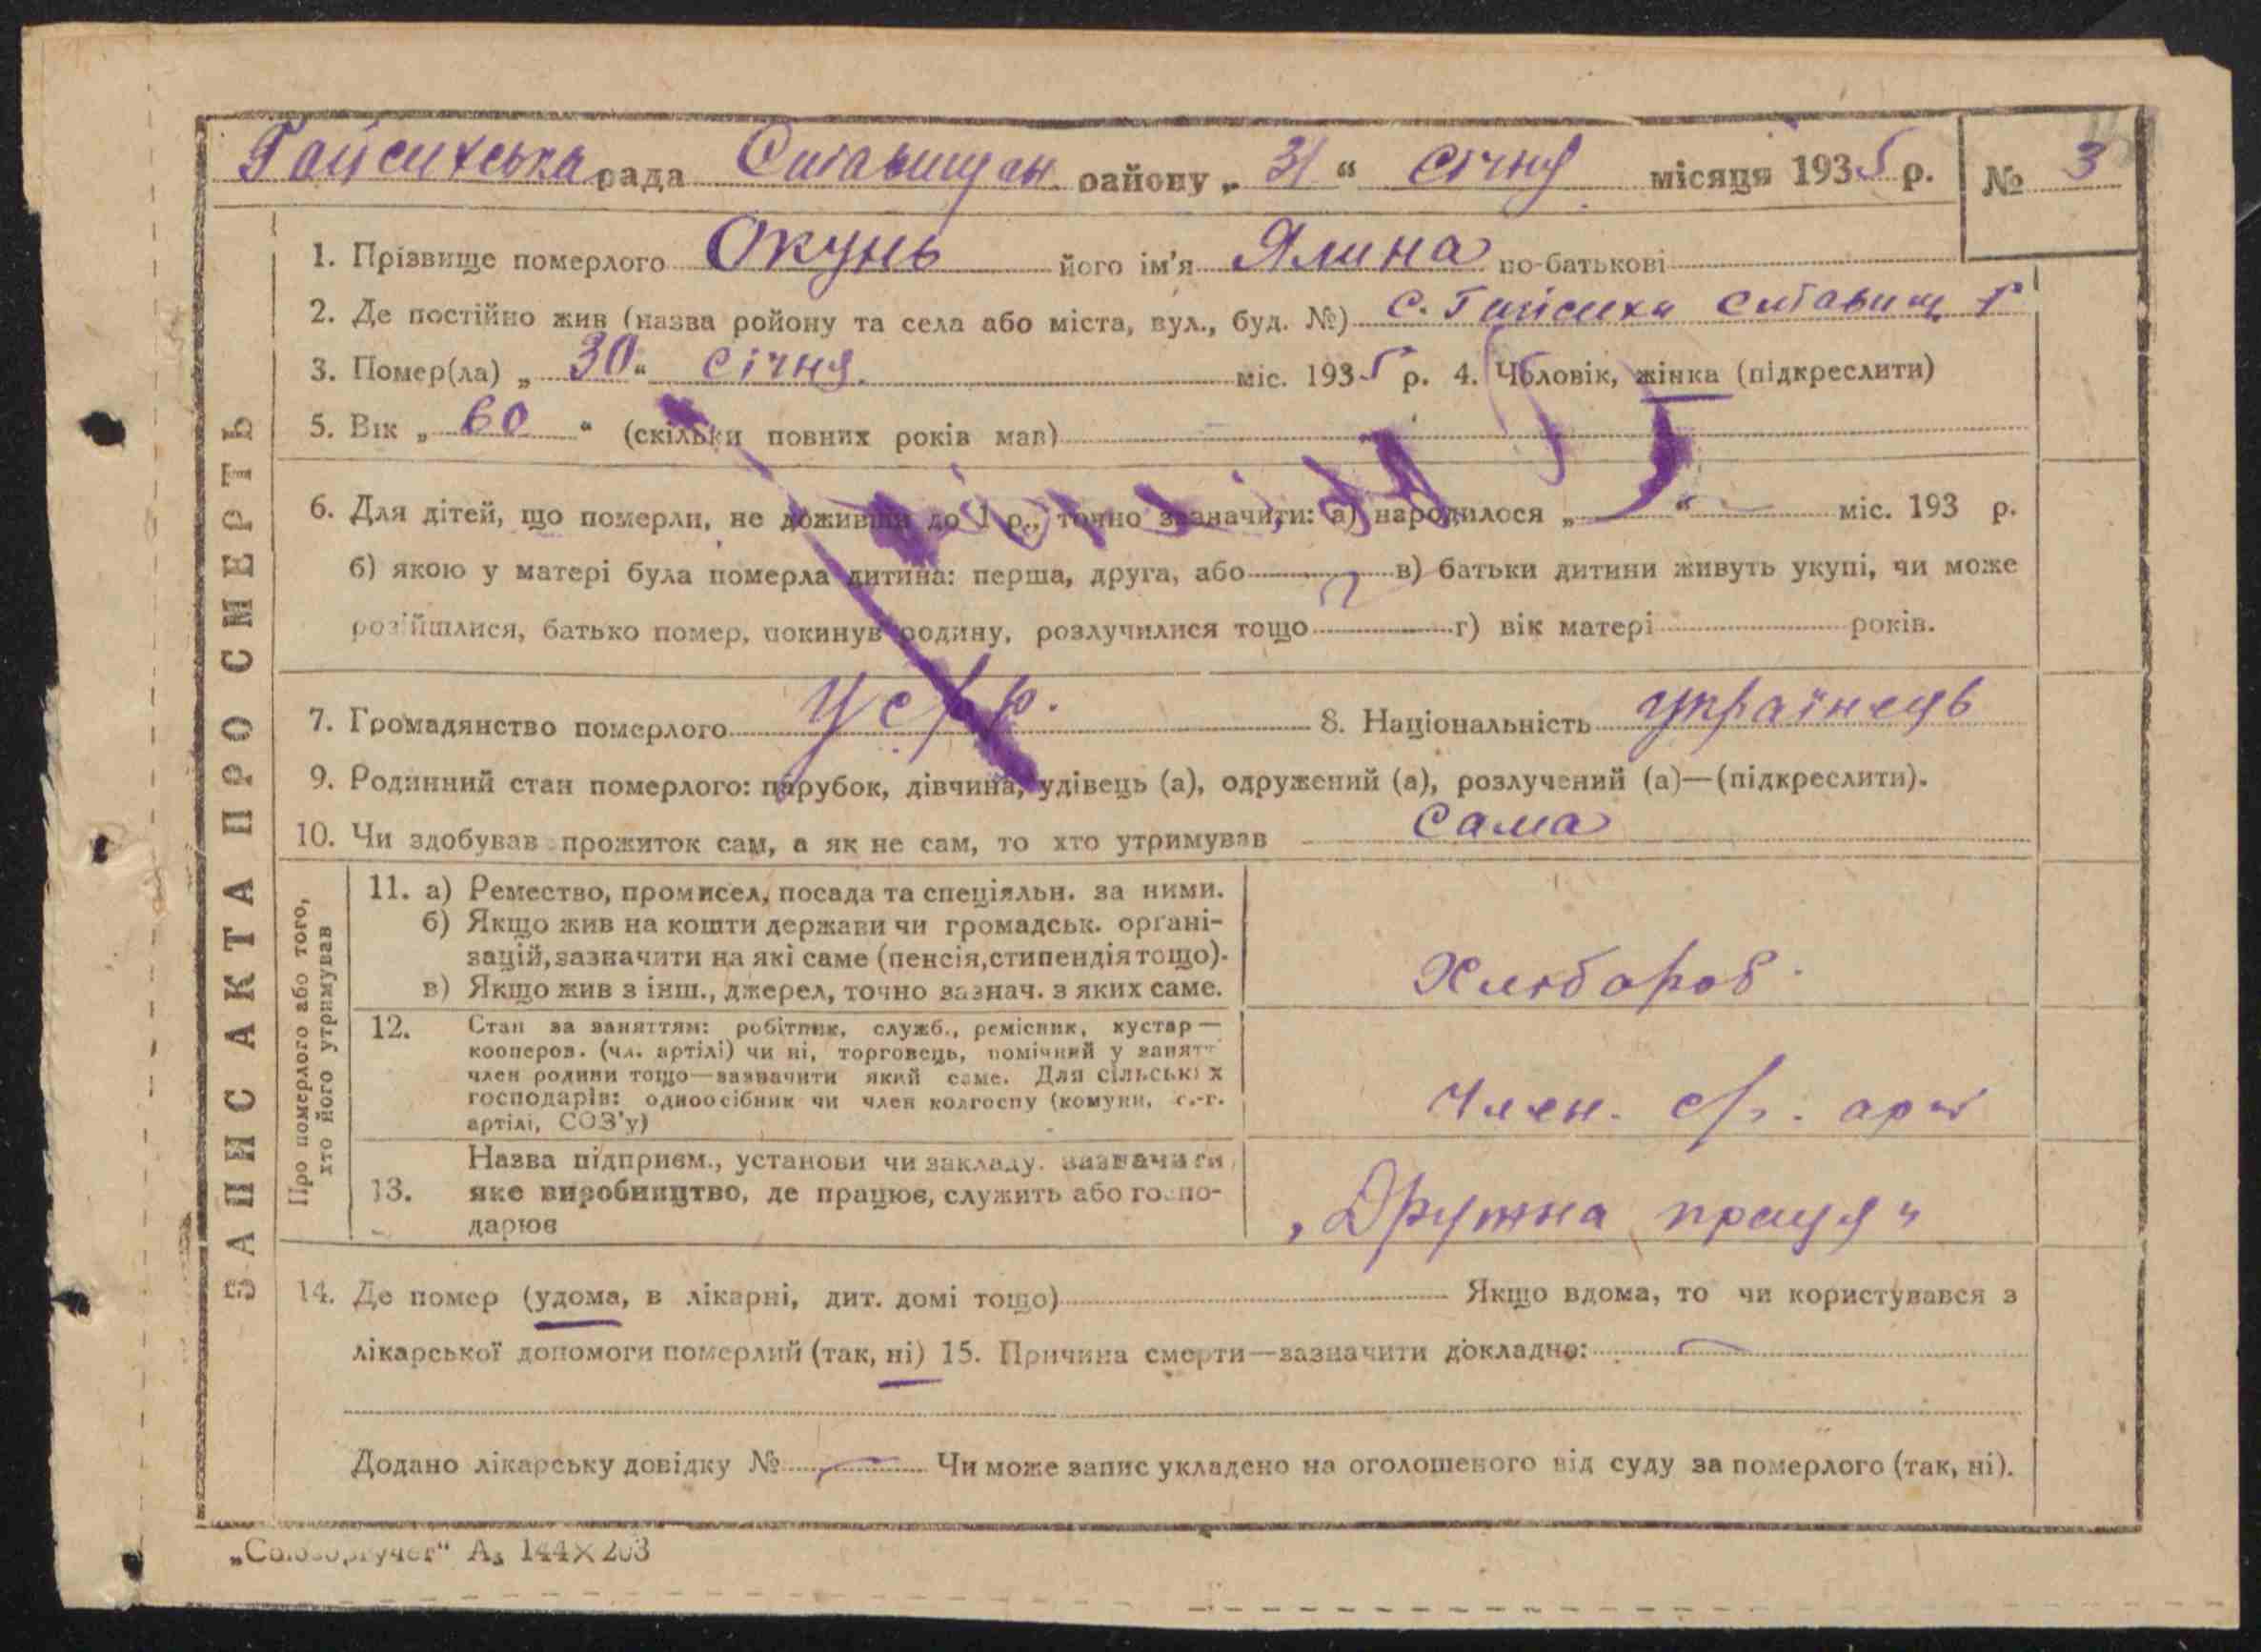 Гайсихська рада Ставищан району „ 31 “ січня місяця 1935 р. № 3
1. Прізвище померлого Окунь його ім'я Ялина по-батькові
2. Де постійно жив (назва ройону та села або міста, вул., буд. №) с. Гайсиха Ставищ р
3. Помер(ла) „ 30 “ січня міс. 1935 р. 4. Чоловік, жінка (підкреслити)
5. Вік „ 60 “ (скільки повних років мав)
6. Для дітей, що померли, не доживши до 1 р., точно зазначити: а) народилося „ “ міс. 193 р.
б) якою у матері була померла дитина: перша, друга, або в) батьки дитини живуть укупі, чи може
розійшлися, батько помер, покинув родину, розлучилися тощо г) вік матері років.
7. Громадянство померлого УСРР. 8. Національність українець
9. Родинний стан померлого: парубок, дівчина, удівець (а), одружений (а), розлучений (а)—(підкреслити).
10. Чи здобував прожиток сам, а як не сам, то хто утримував сама
ЗАПИС АКТА ПРО СМЕРТЬ
Про померлого або того,
хто його утримував
11. а) Ремество, промисел, посада та спеціяльн. за ними.
б) Якщо жив на кошти держави чи громадськ. органі-
зацій, зазначити на які саме (пенсія, стипендія тощо).
в) Якщо жив з інш., джерел, точно зазнач. з яких саме.
Хлібороб
12. Стан за заняттям: робітник, служб., ремісник, кустар—
кооперов. (чл. артілі) чи ні, торговець, помічний у занятт
член родини тощо—зазначити який саме. Для сільських
господарів: одноосібник чи член колгоспу (комуни, с.-г.
артілі, СОЗ'у)
Член. ср. арт
13. Назва підприєм., установи чи закладу. зазначити
яке виробництво, де працює, служить або госпо-
дарює
„Дружна праця"
14. Де помер (удома, в лікарні, дит. домі тощо) Якщо вдома, то чи користувався з
лікарської допомоги померлий (так, ні) 15. Причина смерти—зазначити докладно:
Додано лікарську довідку № Чи може запис укладено на оголошеного від суду за померлого (так, ні).
„Союзоргучет“ А₅ 144×203